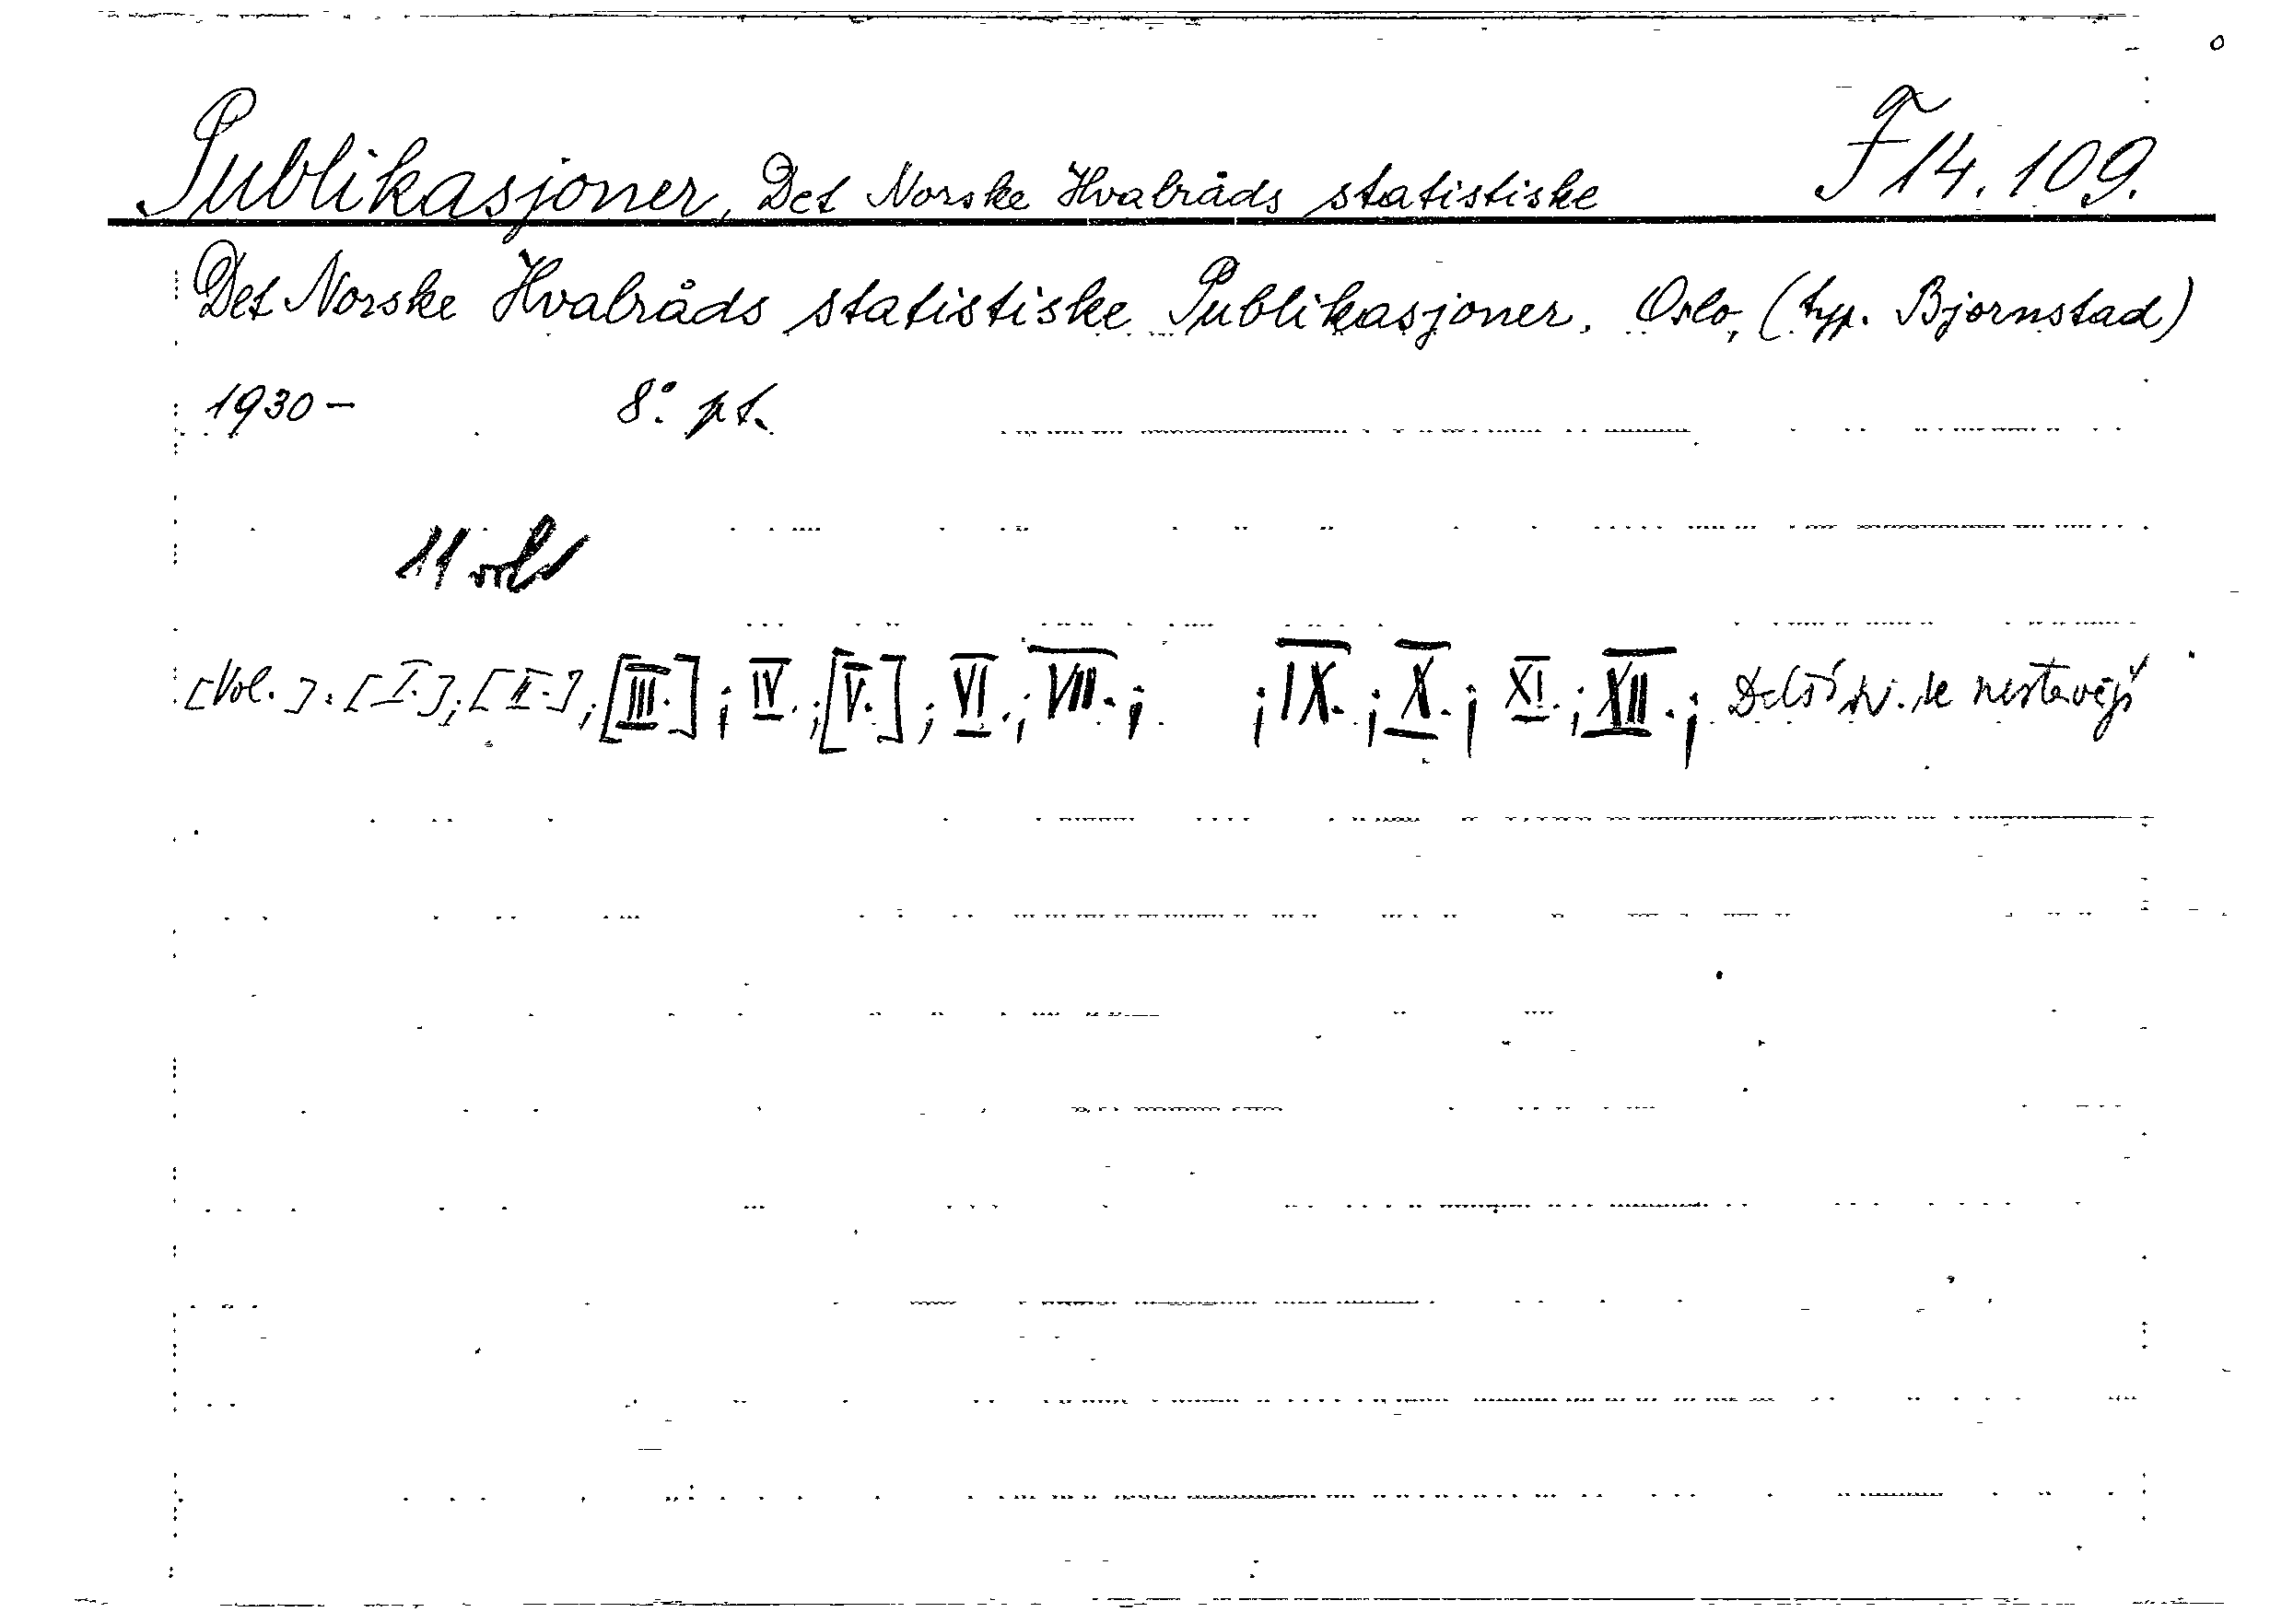 Publikasjoner, Det Norske Hvalråds statistiske F 14.109.
Det Norske Hvalråds statistiske Publikasjoner. Oslo, (typ. Bjornstad)
1930- 8°. pt.
11 vols
[Vol.]: [I.]; [II.]; [III.]; IV.; [V.]; VI.; VII.; ; IX.; X.; XI.; XII.; Další sv. se nestavějí